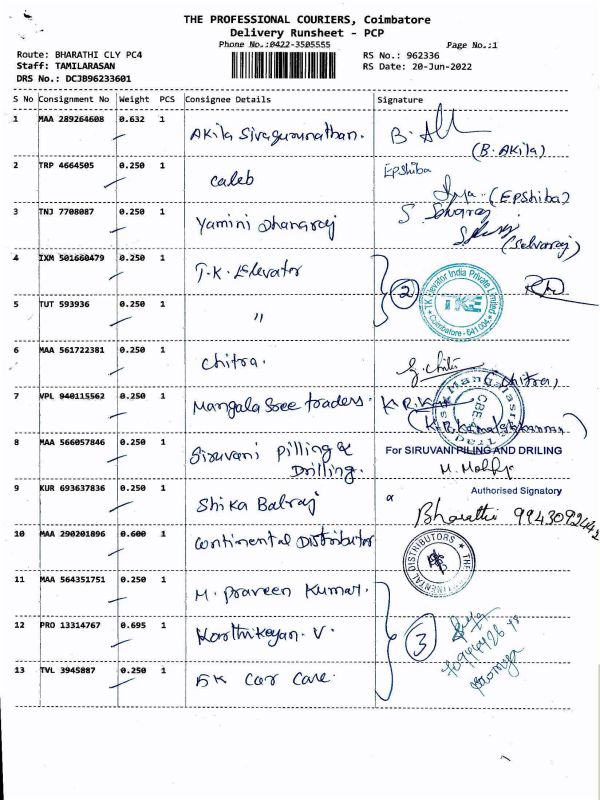 THE PROFESSIONAL COURIERS, Coimbatore
Delivery Runsheet - PCP
Phone No.:0422-3505555 Page No.:1
Route: BHARATHI CLY PC4 RS No.: 962336
Staff: TAMILARASAN RS Date: 20-Jun-2022
DRS No.: DCJB96233601
S No Consignment No Weight PCS Consignee Details Signature
1 MAA 289264608 0.632 1 Akila Sivagurunathan. B. Akila
(B. AKila)
2 TRP 4664505 0.250 1 caleb Epshiba
(Epshiba)
3 TNJ 7708087 0.250 1 Yamini Dhanaraj S. Selvaraj
(Selvaraj)
4 IXM 501660479 0.250 1 T.K. Elevator
2
TK Elevator India Private Limited
TKE
Coimbatore - 641 004
5 TUT 593936 0.250 1 "
6 MAA 561722381 0.250 1 chitra. G. chitra
(G. chitra)
7 VPL 940115562 0.250 1 Mangala Sree traders.
CBE
8 MAA 566057846 0.250 1 Siruvani pilling & Drilling.
For SIRUVANI PILING AND DRILING
Authorised Signatory
9 KUR 693637836 0.250 1 Shika Balraj Bharathi
10 MAA 290201896 0.600 1 continental Distributor
11 MAA 564351751 0.250 1 M. praveen Kumar.
12 PRO 13314767 0.695 1 Karthikeyan. V. 3
13 TVL 3945887 0.250 1 5K car care.